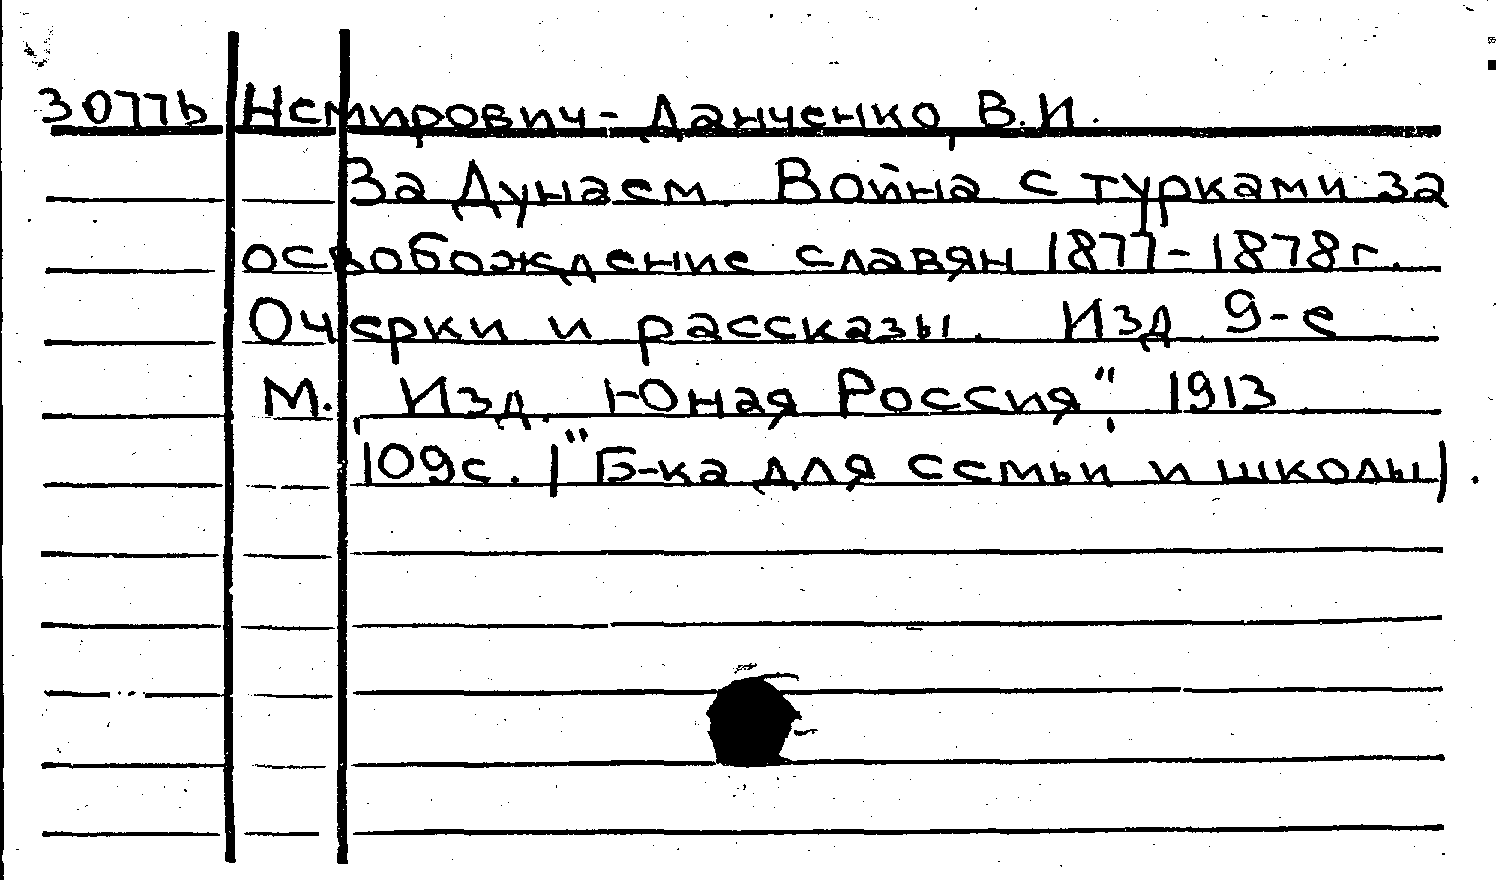 3077ь Немирович-Данченко, В.И.
За Дунаем. Война с турками за
освобождение славян 1877-1878г.
Очерки и рассказы. Изд 9-е
М., Изд. Юная Россия", 1913
109с. /"Б-ка для семьи и школы/.